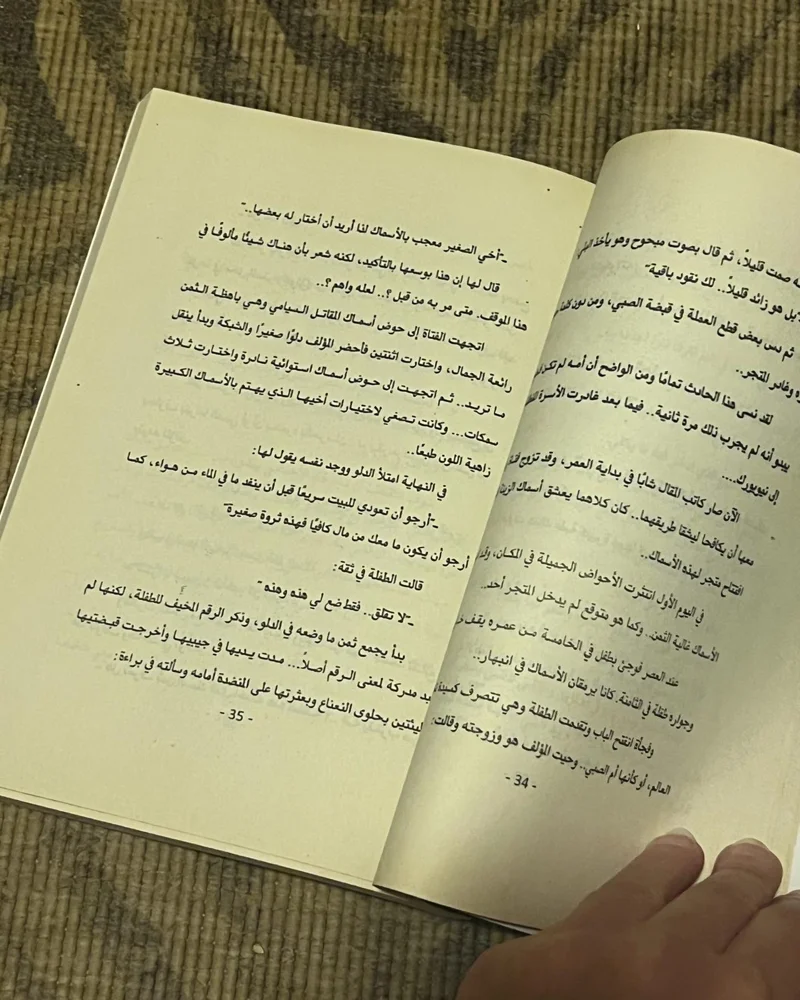 صمت قليلاً، ثم قال بصوت مبحوح وهو يأخذ
هو زائد قليلاً.. لك نقود باقية"
ثم دس بعض قطع العملة في قبضة الصبي، ومن دون
وغادر المتجر..
لقد نسى هذا الحادث تمامًا ومن الواضح أن أمه لم
يبدو أنه لم يجرب ذلك مرة ثانية.. فيما بعد غادرت الأسرة
إلى نيويورك....
الآن صار كاتب المقال شابًا في بداية العمر، وقد تزوج
معها أن يكافحا ليشقا طريقهما.. كان كلاهما يعشق أسماك
افتتاح متجر لهذه الأسماك..
في اليوم الأول انتشرت الأحواض الجميلة في المكان،
الأسماك غالية الثمن.. وكما هو متوقع لم يدخل المتجر أحد..
عند العصر فوجئ بطفل في الخامسة من عمره يقف
وجواره طفلة في الثامنة. كانا يرمقان الأسماك في انبهار..
وفجأة انفتح الباب وتقدمت الطفلة وهي تتصرف
العالم، أو كأنها أم الصبي.. وحيت المؤلف هو وزوجته وقالت:
- 34 -
ـ"أخي الصغير معجب بالأسماك لذا أريد أن أختار له بعضها.."
قال لها إن هذا بوسعها بالتأكيد، لكنه شعر بأن هناك شيئًا مألوفًا في
هذا الموقف. متى مر به من قبل؟.. لعله واهم؟..
اتجهت الفتاة إلى حوض أسماك المقاتل السيامي وهي باهظة الثمن
رائعة الجمال، واختارت اثنتين فأحضر المؤلف دلوًا صغيرًا والشبكة وبدأ ينقل
ما تريد.. ثم اتجهت إلى حوض أسماك استوائية نادرة واختارت ثلاث
سمكات... وكانت تصغي لاختيارات أخيها الذي يهتم بالأسماك الكبيرة
زاهية اللون طبعًا..
في النهاية امتلأ الدلو ووجد نفسه يقول لها:
ـ"أرجو أن تعودي للبيت سريعًا قبل أن ينفد ما في الماء من هواء، كما
أرجو أن يكون ما معك من مال كافيًا فهذه ثروة صغيرة"
قالت الطفلة في ثقة:
ـ"لا تقلق.. فقط ضع لي هذه وهذه"
بدأ يجمع ثمن ما وضعه في الدلو، وذكر الرقم المخيف للطفلة، لكنها لم
بد مدركة لمعنى الرقم أصلاً... مدت يديها في جيبيها وأخرجت قبضتيها
ليئتين بحلوى النعناع وبعثرتها على المنضدة أمامه وسألته في براءة:
- 35 -